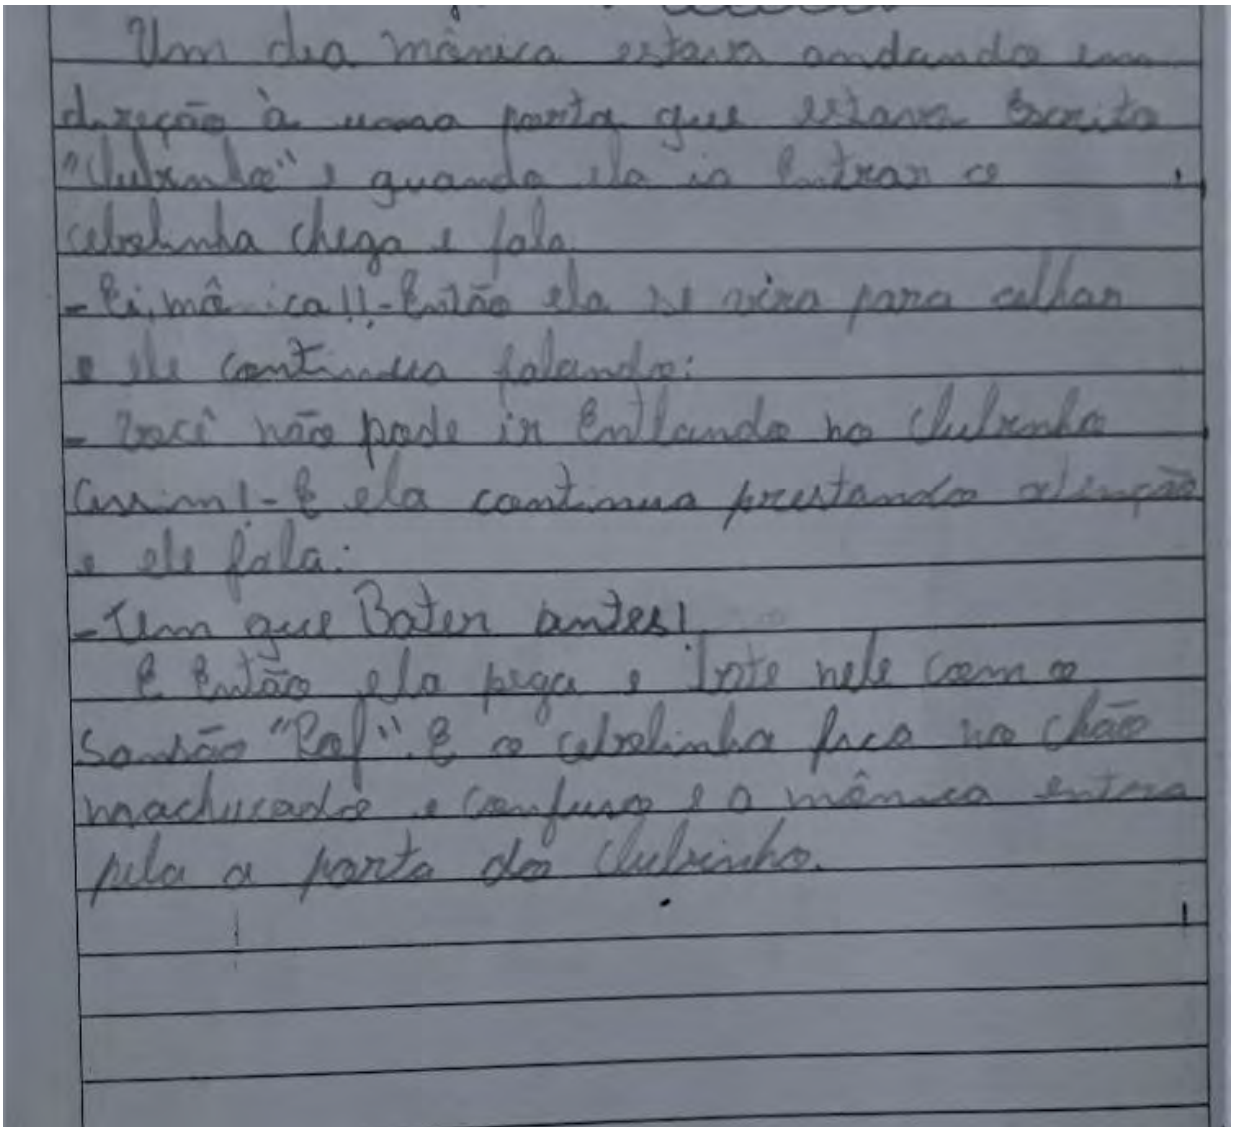 Um dia mônica estava andando em
direção à uma porta que estava Escrito
"Clubinho" e quando ela ia Entrar o
cebolinha chega e fala
- Ei, mônica!! - Então ela se vira para olhar
e ele continua falando:
- Você não pode ir Entlando no Clubinho
assim! - E ela continua prestando atenção
e ele fala:
- Tem que Bater antes!
E Então ela pega e bate nele com o
Sansão "Paf". E o cebolinha fica no chão
machucado e confuso e a mônica entra
pela a porta do Clubinho.